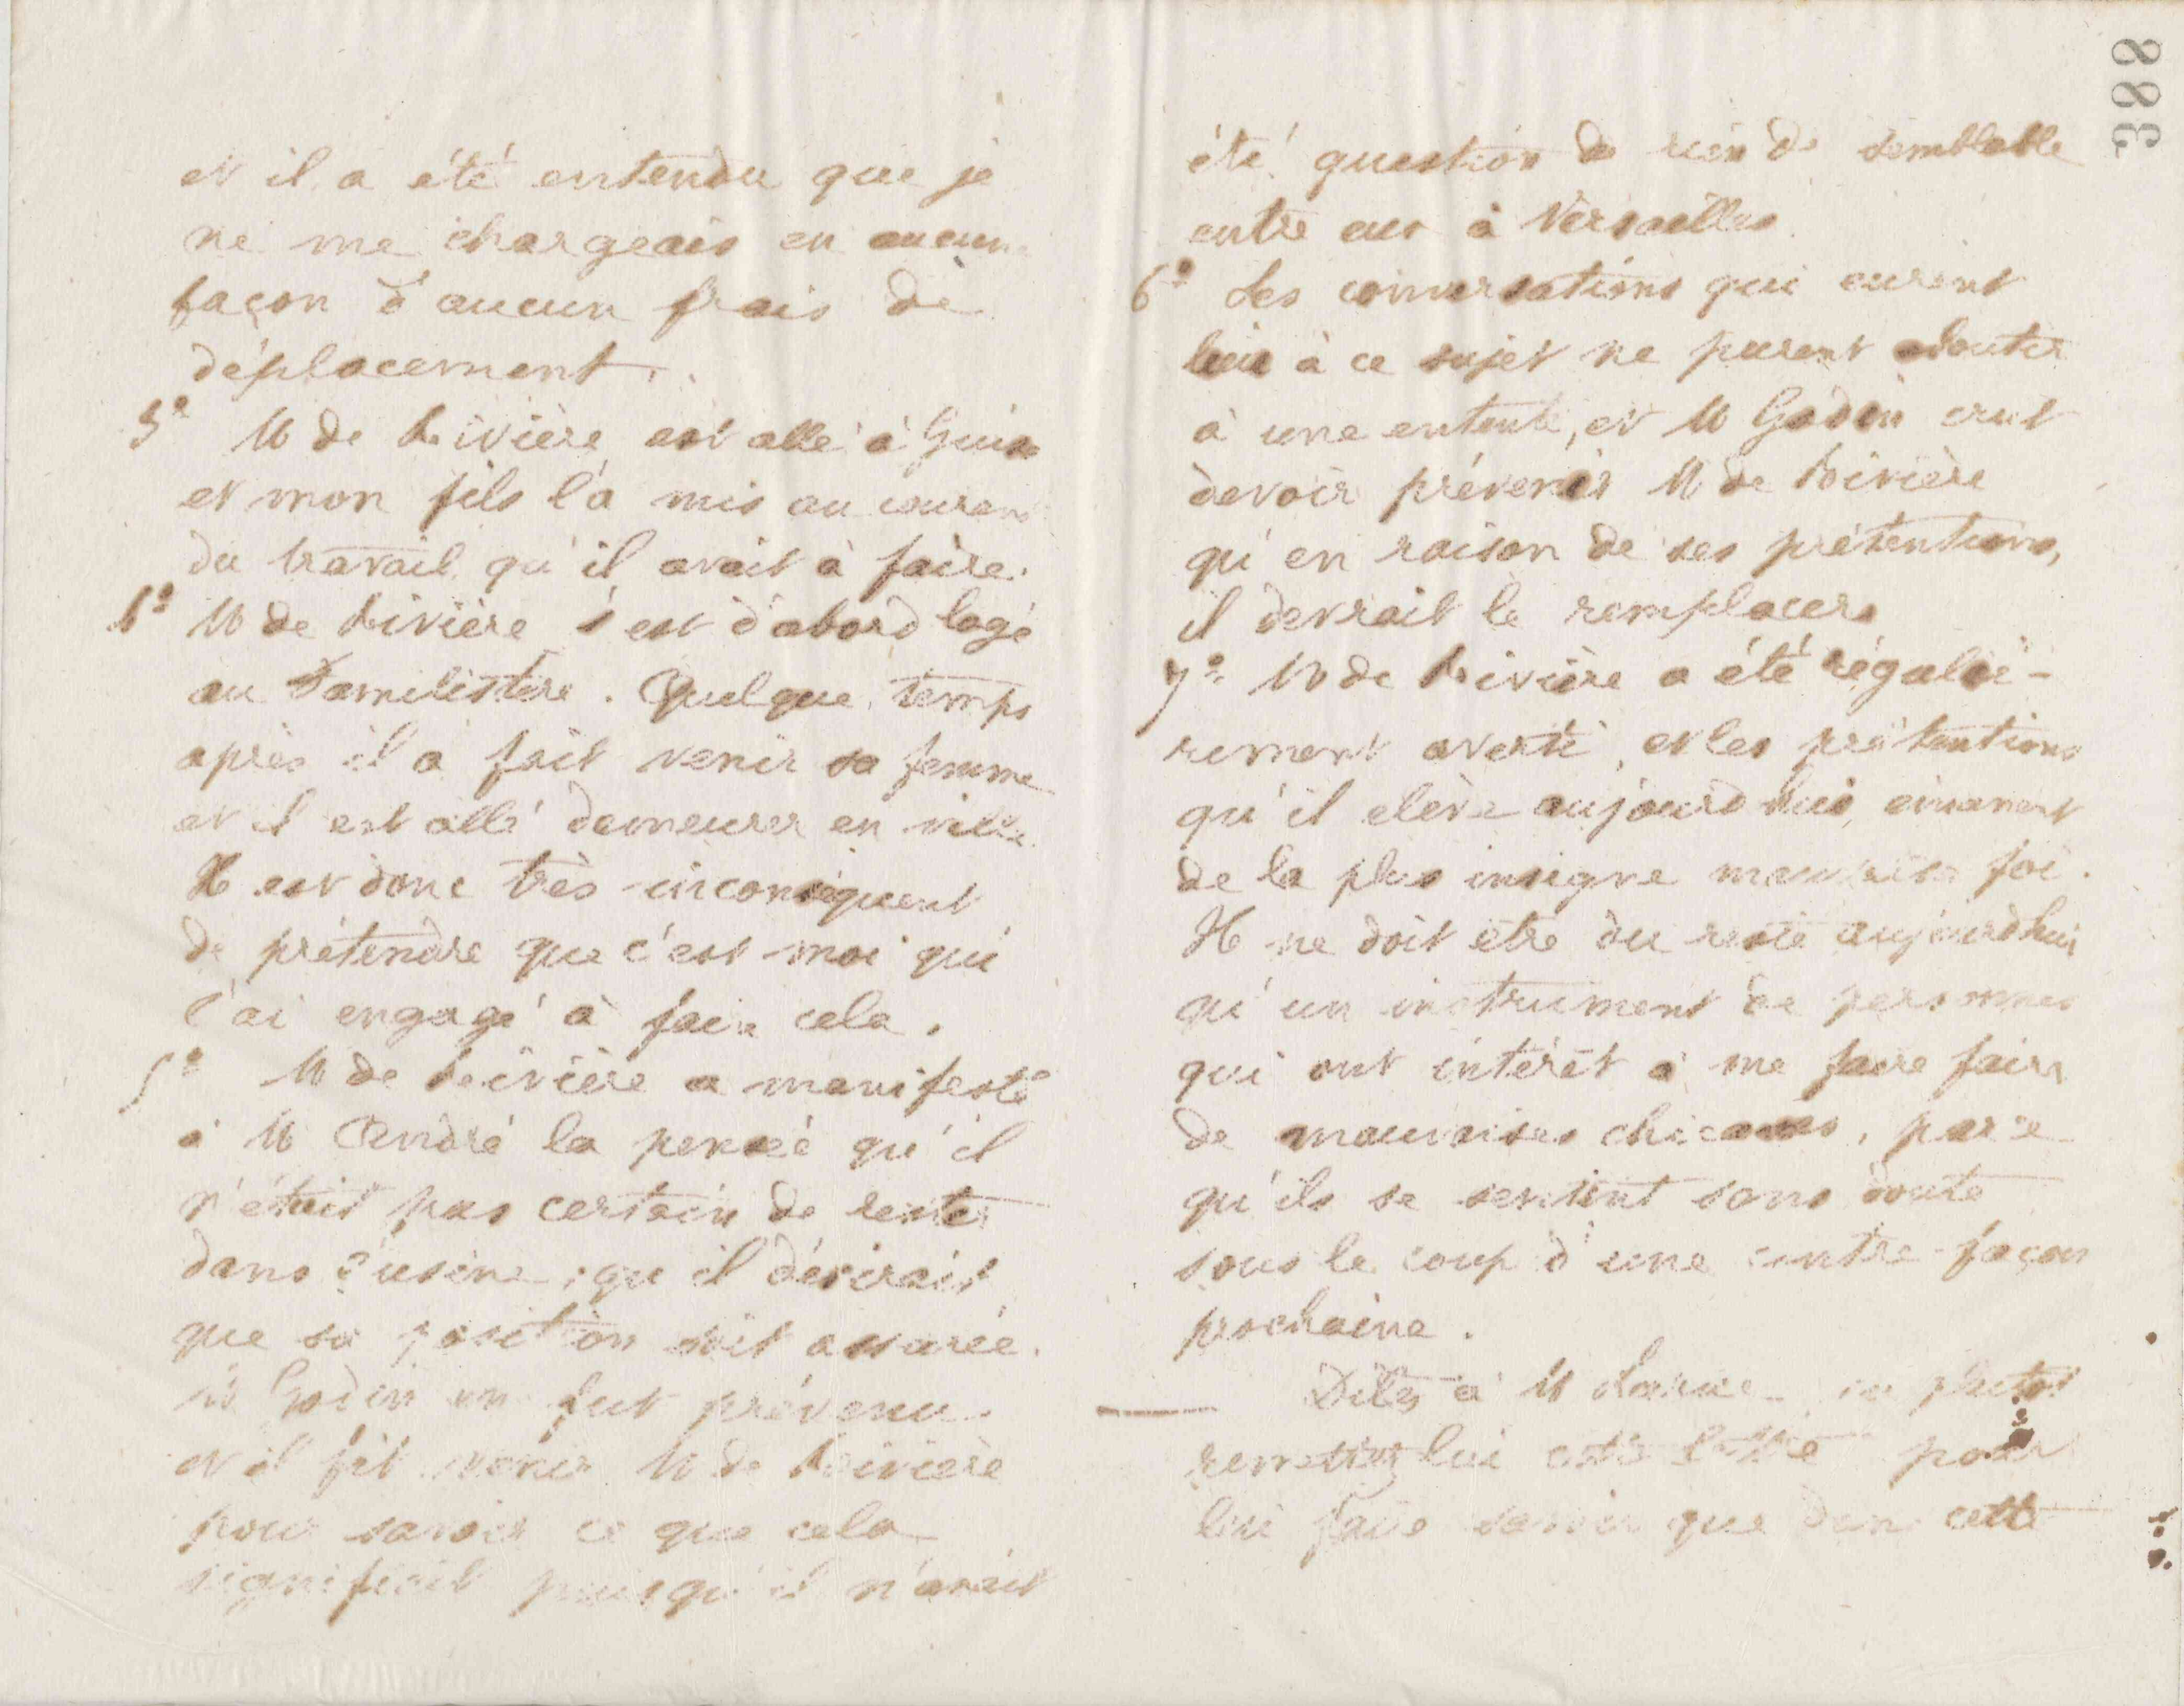 et il a été entendu que je
ne me chargeais en aucune
façon d'aucun frais de
déplacement.
3º M de Rivière est allé à Guise
et mon fils l'a mis au courant
du travail qu'il avait à faire.
4º M de Rivière s'est d'abord logé
au Familistère. Quelque temps
après il a fait venir sa femme
et il est allé demeurer en ville.
Il est donc très inconséquent
de prétendre que c'est moi qui
l'ai engagé à faire cela.
5º M de Rivière a manifesté
à M André la pensée qu'il
n'était pas certain de rester
dans l'usine, qu'il désirait
que sa position soit assurée.
M Godin en fut prévenu
et il fit venir M de Rivière
pour savoir ce que cela
signifiait puisqu'il n'avait
388
été question de rien de semblable
entre eux à Versailles.
6º Les conversations qui eurent
lieu à ce sujet ne purent aboutir
à une entente, et M Godin crut
devoir prévenir M de Rivière
qu'en raison de ses prétentions,
il devrait le remplacer.
7º M de Rivière a été réguliè-
rement averti, et les prétentions
qu'il elève aujourd'hui, émanent
de la plus insigne mauvaise foi.
Il ne doit être du reste aujourd'hui
qu'un instrument de personnes
qui ont intérêt à me faire faire
de mauvaises chicanes, parce
qu'ils se sentent sans doute
sous le coup d'une contre-façon
prochaine.
Dites à M ou plutôt
remettez lui cette lettre pour
lui faire savoir que dans cette